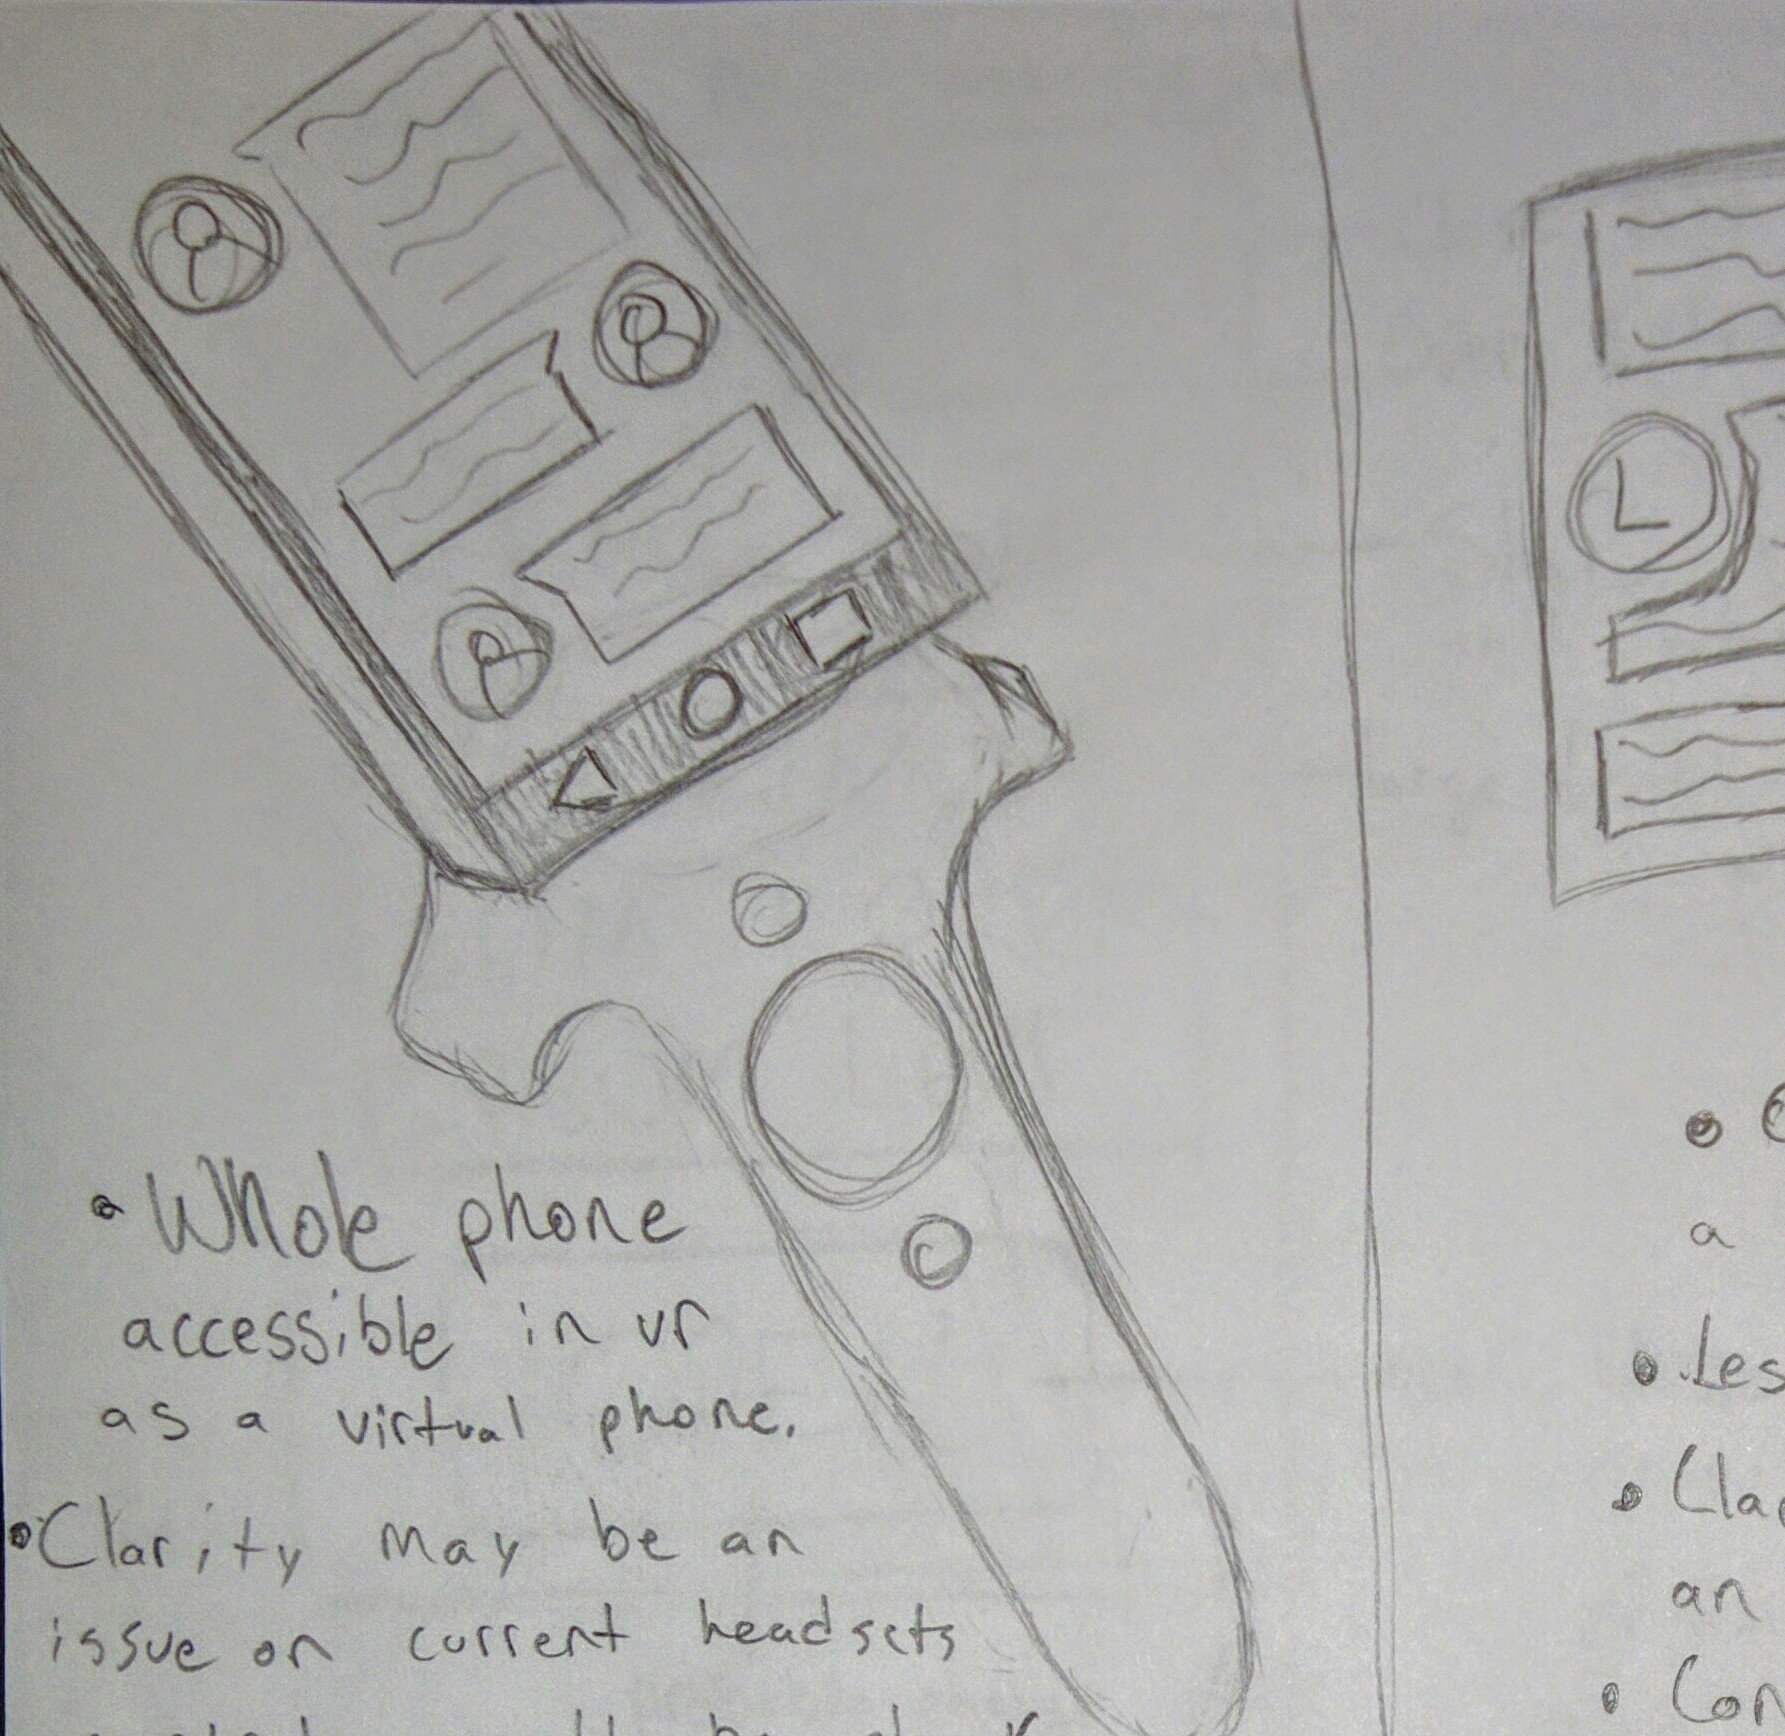 • Whole phone
accessible in vr
as a virtual phone.
• Clarity may be an
issue on current headsets
L
•
a
• Les
• Cla
an
• Con